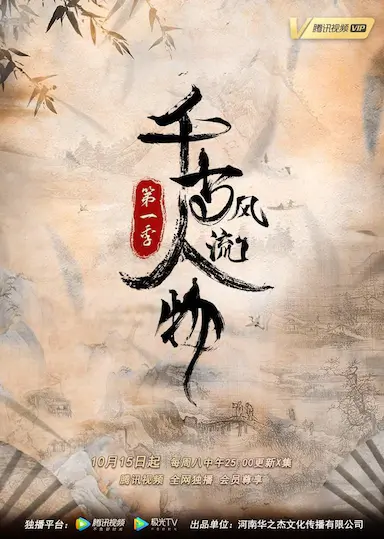 腾讯视频 VIP
千古风流人物
第一季
10月15日起 每周八中午25:00更新X集
腾讯视频 全网独播 会员尊享
独播平台: 腾讯视频 极光TV 出品单位: 河南华之杰文化传播有限公司